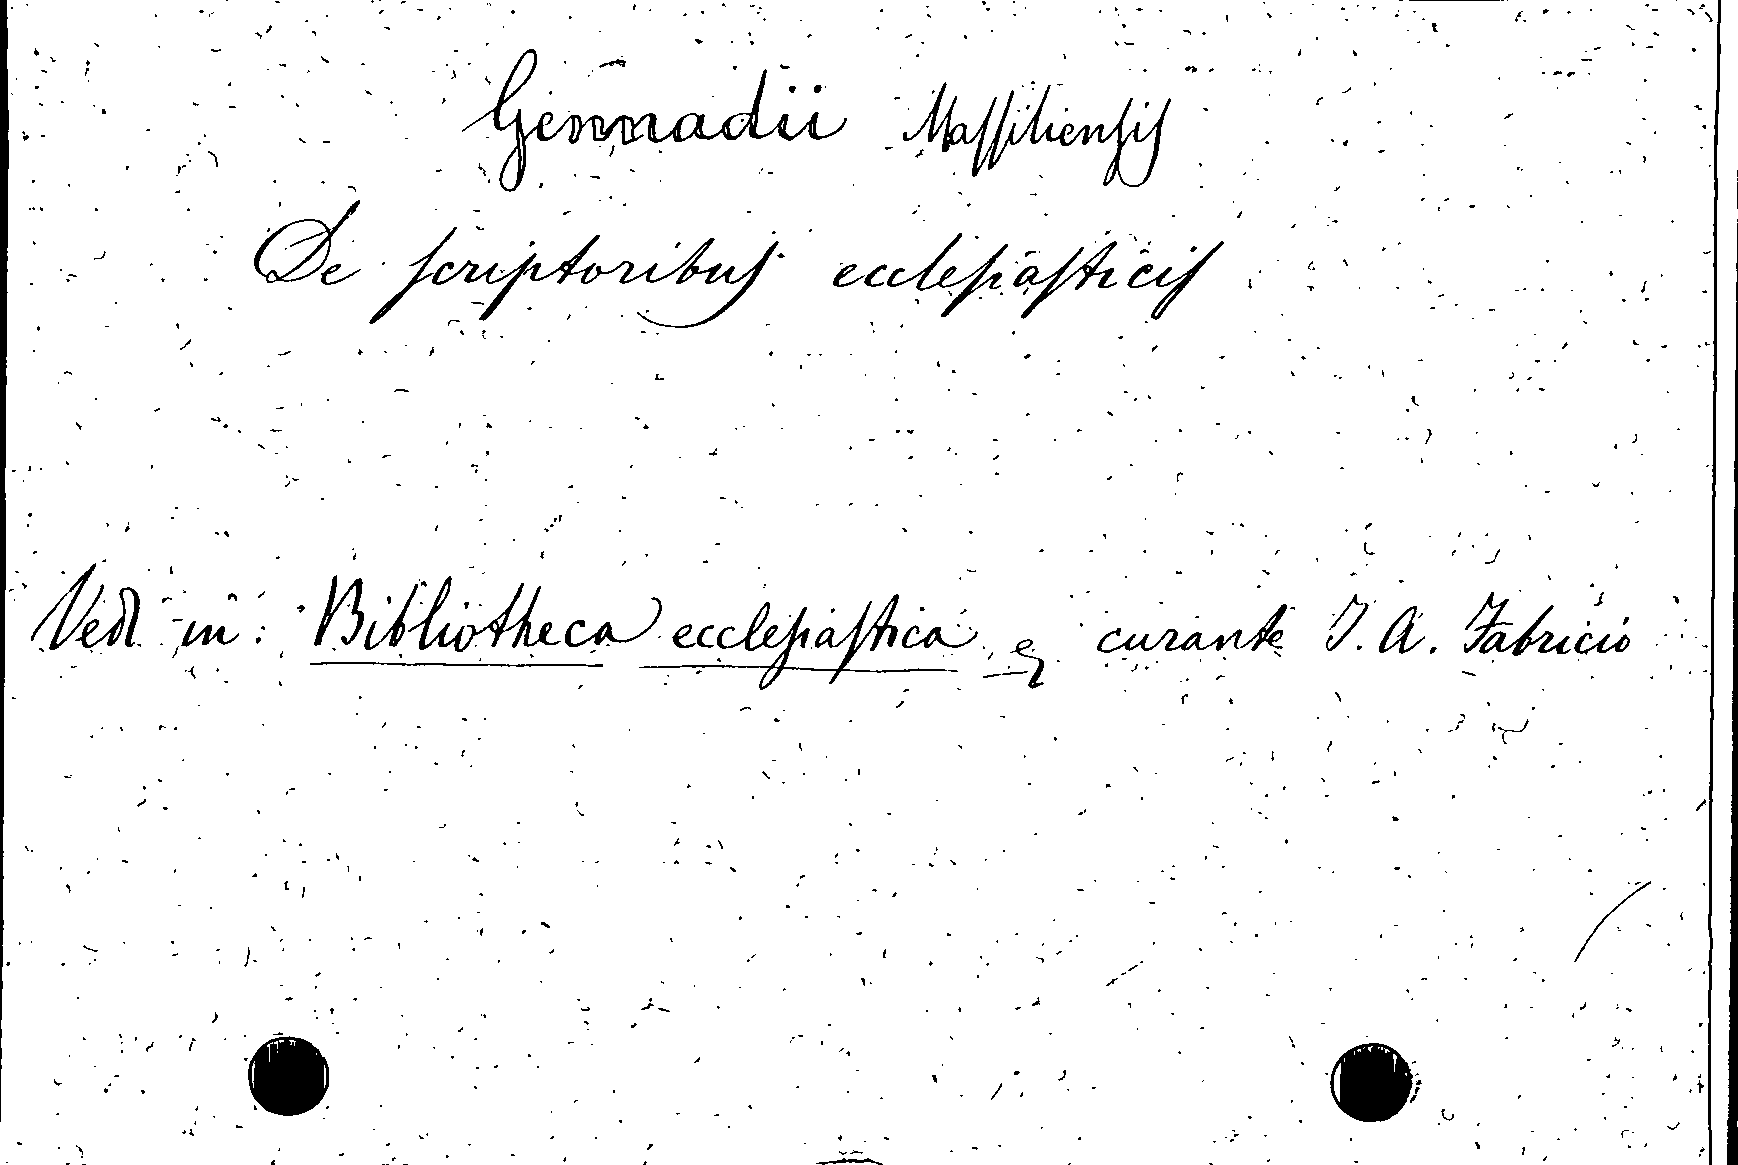 Gennadii Massiliensis
De scriptoribus ecclesiasticis
Vedi in: Bibliotheca ecclesiastica curante J. A. Fabricio